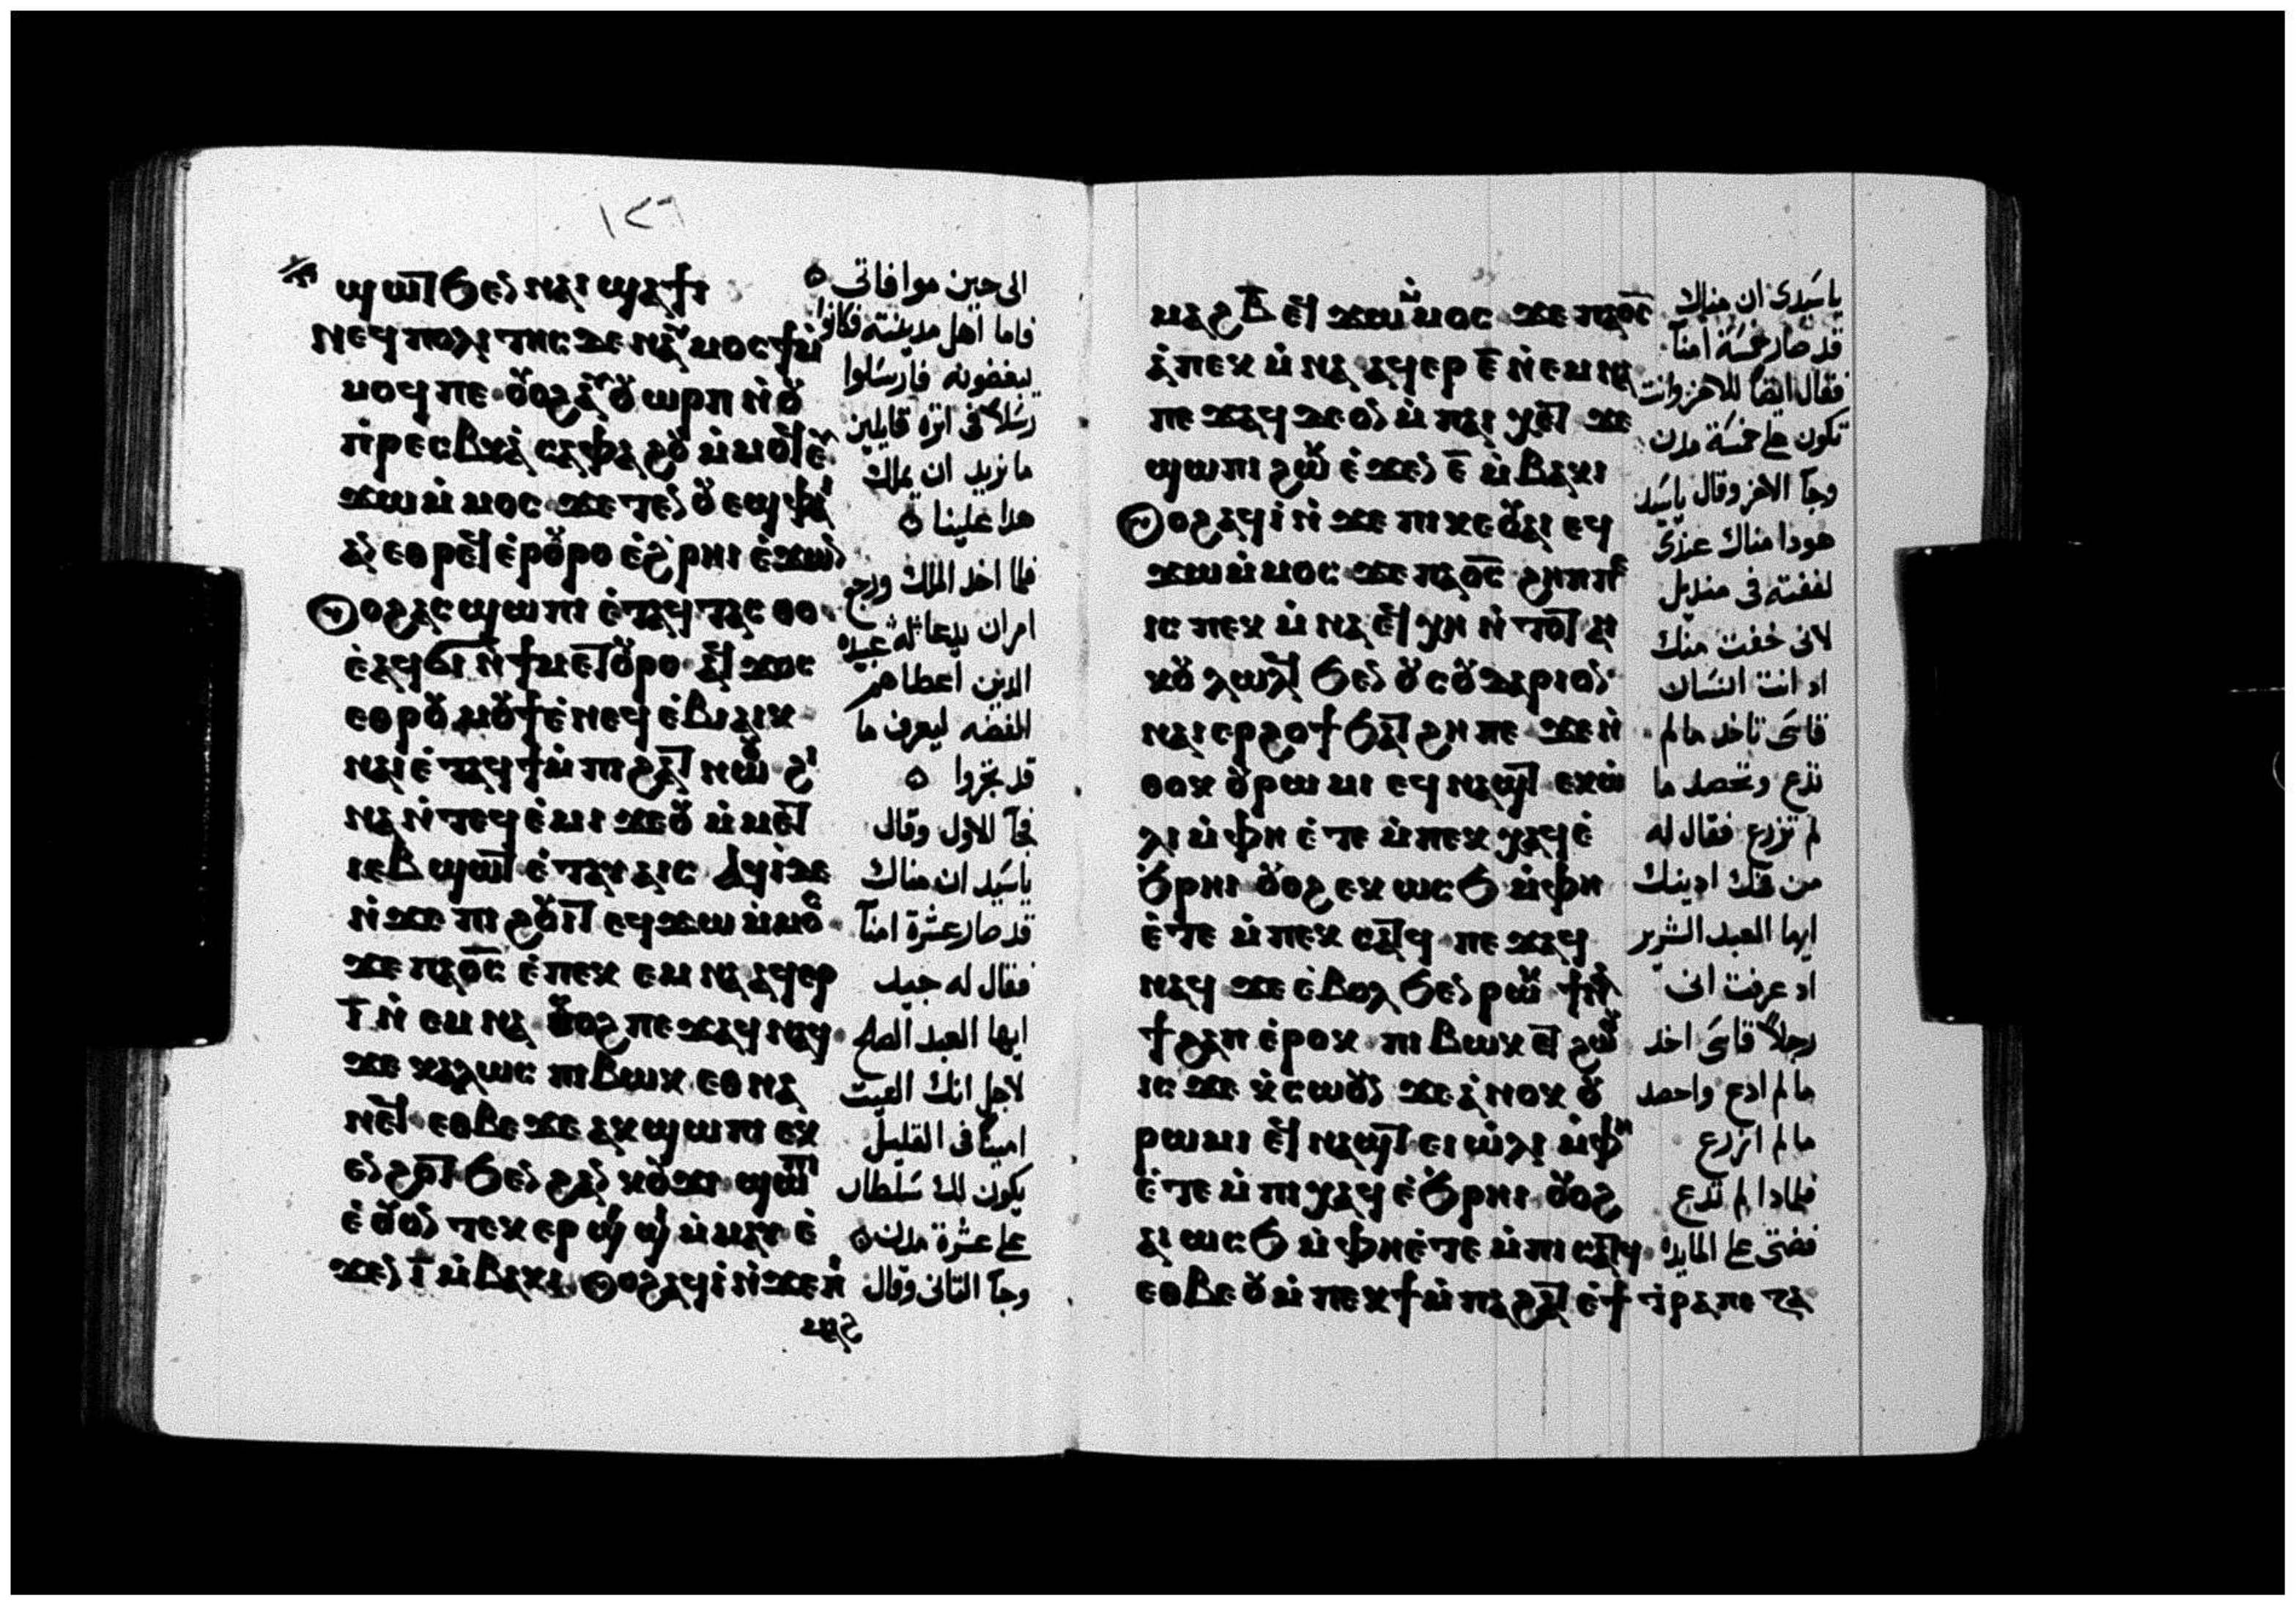 ١٢٦
ϣⲱⲧ ϧⲉⲛ ⲛⲁⲓ ϣⲁϯⲓ
ⲛⲉϥⲡⲟⲗⲓⲧⲏⲥ ⲇⲉ ⲛⲁⲩⲙⲟⲥϯ ⲙ̀
ⲙⲟϥ ⲡⲉ ⲟⲩⲟϩ ⲁⲩⲟⲩⲱⲣⲡ ⲛ̀ⲟⲩ
ⲡ̀ⲣⲉⲥⲃⲓⲁ̀ ⲥⲁⲫⲁϩⲟⲩ ⲙ̀ⲙⲟϥ ⲉⲩ
ϫⲱ ⲙ̀ⲙⲟⲥ ϫⲉ ⲧⲉⲛⲟⲩⲉϣ ⲫⲁⲓ
ⲁⲛ ⲉⲑⲣⲉϥⲉ̀ⲣⲟⲩⲣⲟ ⲉ̀ϩ̀ⲣⲏⲓ ⲉ̀ϫⲱⲛ
ⲟⲩⲟϩ ⲁⲥϣⲱⲡⲓ ⲉ̀ⲧⲁϥⲧⲁⲥⲑⲟ
ⲉ̀ⲁϥϭⲓ ⲛ̀ϯⲙⲉⲧⲟⲩⲣⲟ ⲁϥϫⲟⲥ
ⲉⲑⲣⲟⲩⲙⲟⲩϯ ⲉ̀ⲛⲉϥⲉ̀ⲃⲓⲁⲓⲕ
ⲛⲁⲓ ⲉ̀ⲧⲁϥϯ ⲙ̀ⲡⲓϩⲁⲧ ⲛⲱⲟⲩ ϩⲓ
ⲛⲁ ⲛ̀ⲧⲉϥⲉ̀ⲙⲓ ϫⲉ ⲟⲩ ⲙ̀ⲙⲉⲧ
ⲓⲉⲃϣⲱⲧ ⲉ̀ⲧⲁⲩⲁⲓⲥ ⲁϥⲓ̀ ⲇⲉ
ⲛ̀ϫⲉ ⲡⲓϩⲟⲩⲓⲧ ⲉϥϫⲱ ⲙ̀ⲙⲟⲥ
ϫⲉ ⲡⲁⲟ̅ⲥ̅ ⲉ̀ⲡⲉⲕ ⲉⲙⲛⲁ ⲁϥⲉⲣ
ⲓ̅ ⲛ̀ⲉⲙⲛⲁ ⲟⲩⲟϩ ⲡⲉϫⲁϥ ⲛⲁϥ
ϫⲉ ⲕⲁⲗⲱⲥ ⲡⲓⲃⲱⲕ ⲉⲑⲛⲁ
ⲛⲉϥ ⲉⲑⲃⲉ ϫⲉ ⲁⲕϣⲱⲡⲓ ⲉⲕ
ⲉⲛϩⲟⲧ ϧⲉⲛ ϩⲁⲛⲕⲟⲩϫⲓ ϣⲱⲡⲓ
ⲉ̀ⲟⲩⲟⲛⲧⲉⲕ ⲉⲣϣⲓϣⲓ ⲙ̀ⲙⲁⲩ ⲉ̀
ϫⲉⲛ ⲓ̅ ⲙ̀ⲃⲁⲕⲓ ⲟⲩⲟϩ ⲁϥⲓ̀ ⲛ̀ϫⲉ ⲡⲓ
ⲙⲁϩ
الى حين موافاتى
فاما اهل مدينته فكانوا
يبغضونه فارسلوا
رسلاً فى اثره قايلين
ما نريد ان يملك
هدا علينا
فلما اخد الملك ورجع
امر ان يدعا له عبيده
الدين اعطاهم
الفضه ليعرف ما
قد تجروا
فجآ الاول وقال
ياسيد ان مناك
قد صار عشرة امنآ
فقال له جيد
ايها العبد الصالح
لاجل انك الفيت
امينًا فى القليل
يكون لك سلطان
على عشرة مدن
وجآ التانى وقال
ⲙⲁϩⲃ̅ ⲉϥϫⲱ ⲙ̀ⲙⲟⲥ ϫⲉ ⲡⲁⲟ̅ⲥ̅
ⲁ̀ⲡⲉⲕⲉ̀ⲙⲛⲁ ⲁϥⲉⲣ ⲉ̅ ⲛ̀ⲉⲙⲛⲁ
ⲡⲉϫⲁϥ ⲇⲉ ⲟⲛ ⲙ̀ⲡⲁⲓⲭⲉⲧ ϫⲉ
ϣⲱⲡⲓ ϩⲱⲕ ⲉ̀ϫⲉⲛ ⲉ̅ ⲙ̀ⲃⲁⲕⲓ
ⲟⲩⲟϩ ⲁϥⲓ̀ ⲛ̀ϫⲉ ⲡⲓⲕⲉⲟⲩⲁⲓ ⲉϥ
ϫⲱ ⲙ̀ⲙⲟⲥ ϫⲉ ⲡⲁⲟ̅ⲥ̅ ϩⲏⲡⲡⲉ
ⲓⲥ ⲡⲉⲕⲉ̀ⲙⲛⲁ ⲉϥⲭⲏ ⲛ̀ⲧⲟⲧ ⲁⲓ
ⲕⲟⲩⲗⲱⲗϥ ϧⲉⲛ ⲟⲩⲥⲟⲩⲇⲁⲣⲓⲟⲛ
ⲛⲁⲓⲉⲣϩⲟϯ ϧⲁⲧϩⲏ ⲡⲉ ϫⲉ ⲛ̀
ⲑⲟⲕ ⲟⲩⲣⲱⲙⲓ ⲉϥⲛⲁϣⲧ ⲉⲕⲱ̀
ⲗⲓ ⲙ̀ⲫⲏ ⲉ̀ⲧⲉ ⲙ̀ⲡⲉⲕⲭⲁϥ ⲉ̀
ϧ̀ⲣⲏⲓ ⲟⲩⲟϩ ⲉⲕⲱⲥϧ ⲙ̀ⲫⲏ
ⲉ̀ⲧⲉ ⲙ̀ⲡⲉⲕⲥⲁⲧϥ ⲡⲉϫⲁϥ
ⲛⲁϥ ϫⲉ ⲉ̀ⲃⲟⲗ ϧⲉⲛ ⲣⲱⲕ ϯⲛⲁ
ϯϩⲁⲡ ⲉ̀ⲣⲟⲕ ⲡⲓⲃⲱⲕ ⲉⲧϩⲱⲟⲩ
ⲓⲥϫⲉ ⲕ̀ⲥⲱⲟⲩⲛ ϫⲉ ⲁ̀ⲛⲟⲕ ⲟⲩ
ⲣⲱⲙⲓ ⲉϥⲛⲁϣⲧ ⲉⲓⲱ̀ⲗⲓ ⲙ̀ⲫⲏ
ⲉ̀ⲧⲉ ⲙ̀ⲡⲓⲭⲁϥ ⲉ̀ϧ̀ⲣⲏⲓ ⲟⲩⲟϩ
ⲁⲓⲱⲥϧ ⲙ̀ⲫⲏⲉ̀ⲧⲉ ⲙ̀ⲡⲓⲥⲁⲧϥ
ⲉⲑⲃⲉ ⲟⲩ ⲙ̀ⲡⲉⲕϯ ⲙ̀ⲡⲁϩⲁⲧ ⲉ̀ϯⲧ̀ⲣⲁⲡⲉⲍⲁ
ياسيدى ان مناك
قد صار خمسة امنآ
فقال ايضًا للاخر وانت
تكون على خمسة مدن
وجآ الاخر وقال ياسيد
هودا مناك عندى
لففته فى منديل
لانى خفت منك
اد انت انسان
قاسى تاخد ما لم
تدع وتحصد ما
لم تزرع فقال له
من فمك ادينك
ايها العبد الشرير
اد عرفت انى
رجلاً قاسى اخد
ما لم ادع واحصد
ما لم ازرع
فلمادا لم تدع
فضتى على المايده